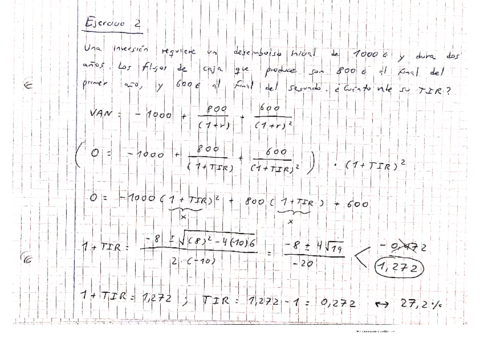 Ejercicio 2
Una inversión requiere un desembolso inicial de 1000€ y dura dos
años. Los flujos de caja que produce son 800€ al final del
primer año, y 600€ al final del segundo. ¿Cuánto vale su TIR?
VAN = -1000 + 800/(1+r) + 600/(1+r)²
( 0 = -1000 + 800/(1+TIR) + 600/(1+TIR)² ) · (1+TIR)²
0 = -1000 (1+TIR)² + 800 (1+TIR) + 600
x x
1+TIR = (-8 ± √((8)² - 4(-10)6)) / (2·(-10)) = (-8 ± 4√19) / (-20) < -0,472
1,272
1+TIR = 1,272 ; TIR = 1,272 - 1 = 0,272 ↔ 27,2%